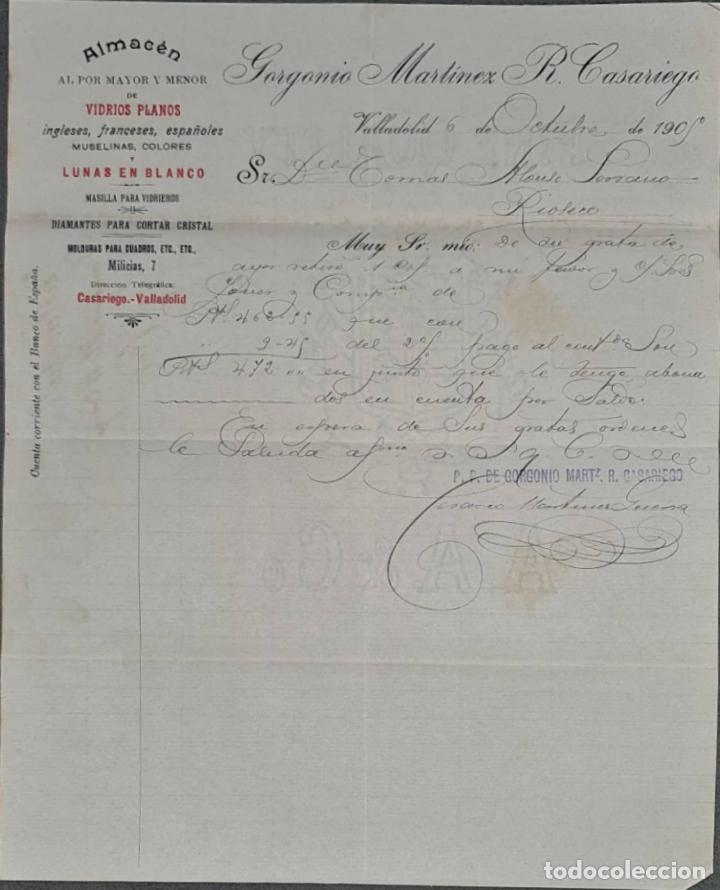 Almacén
AL POR MAYOR Y MENOR
DE
VIDRIOS PLANOS
ingleses, franceses, españoles
MUSELINAS, COLORES
Y
LUNAS EN BLANCO
MASILLA PARA VIDRIEROS
DIAMANTES PARA CORTAR CRISTAL
MOLDURAS PARA CUADROS, ETC., ETC.,
Milicias, 7
Dirección Telegráfica:
Casariego.-Valladolid
Cuenta corriente con el Banco de España.
Gorgonio Martinez R. Casariego
Valladolid 6 de Octubre de 1905
Sr. Dn Tomas Alonso Serrano
Rioseco
Muy Sr. mio: de su grata de
ayer retiro a mi favor y
y Compñia de
Pts 462-55 que con
" 9-45 del 2% pago al contdo Son
Pts 472 " en junto que le tengo abona
dos en cuenta por Saldo.
En espera de Sus gratas ordenes
le Saluda
P. P. DE GORGONIO MARTZ. R. CASARIEGO
Martinez Guerra
todocoleccion.net